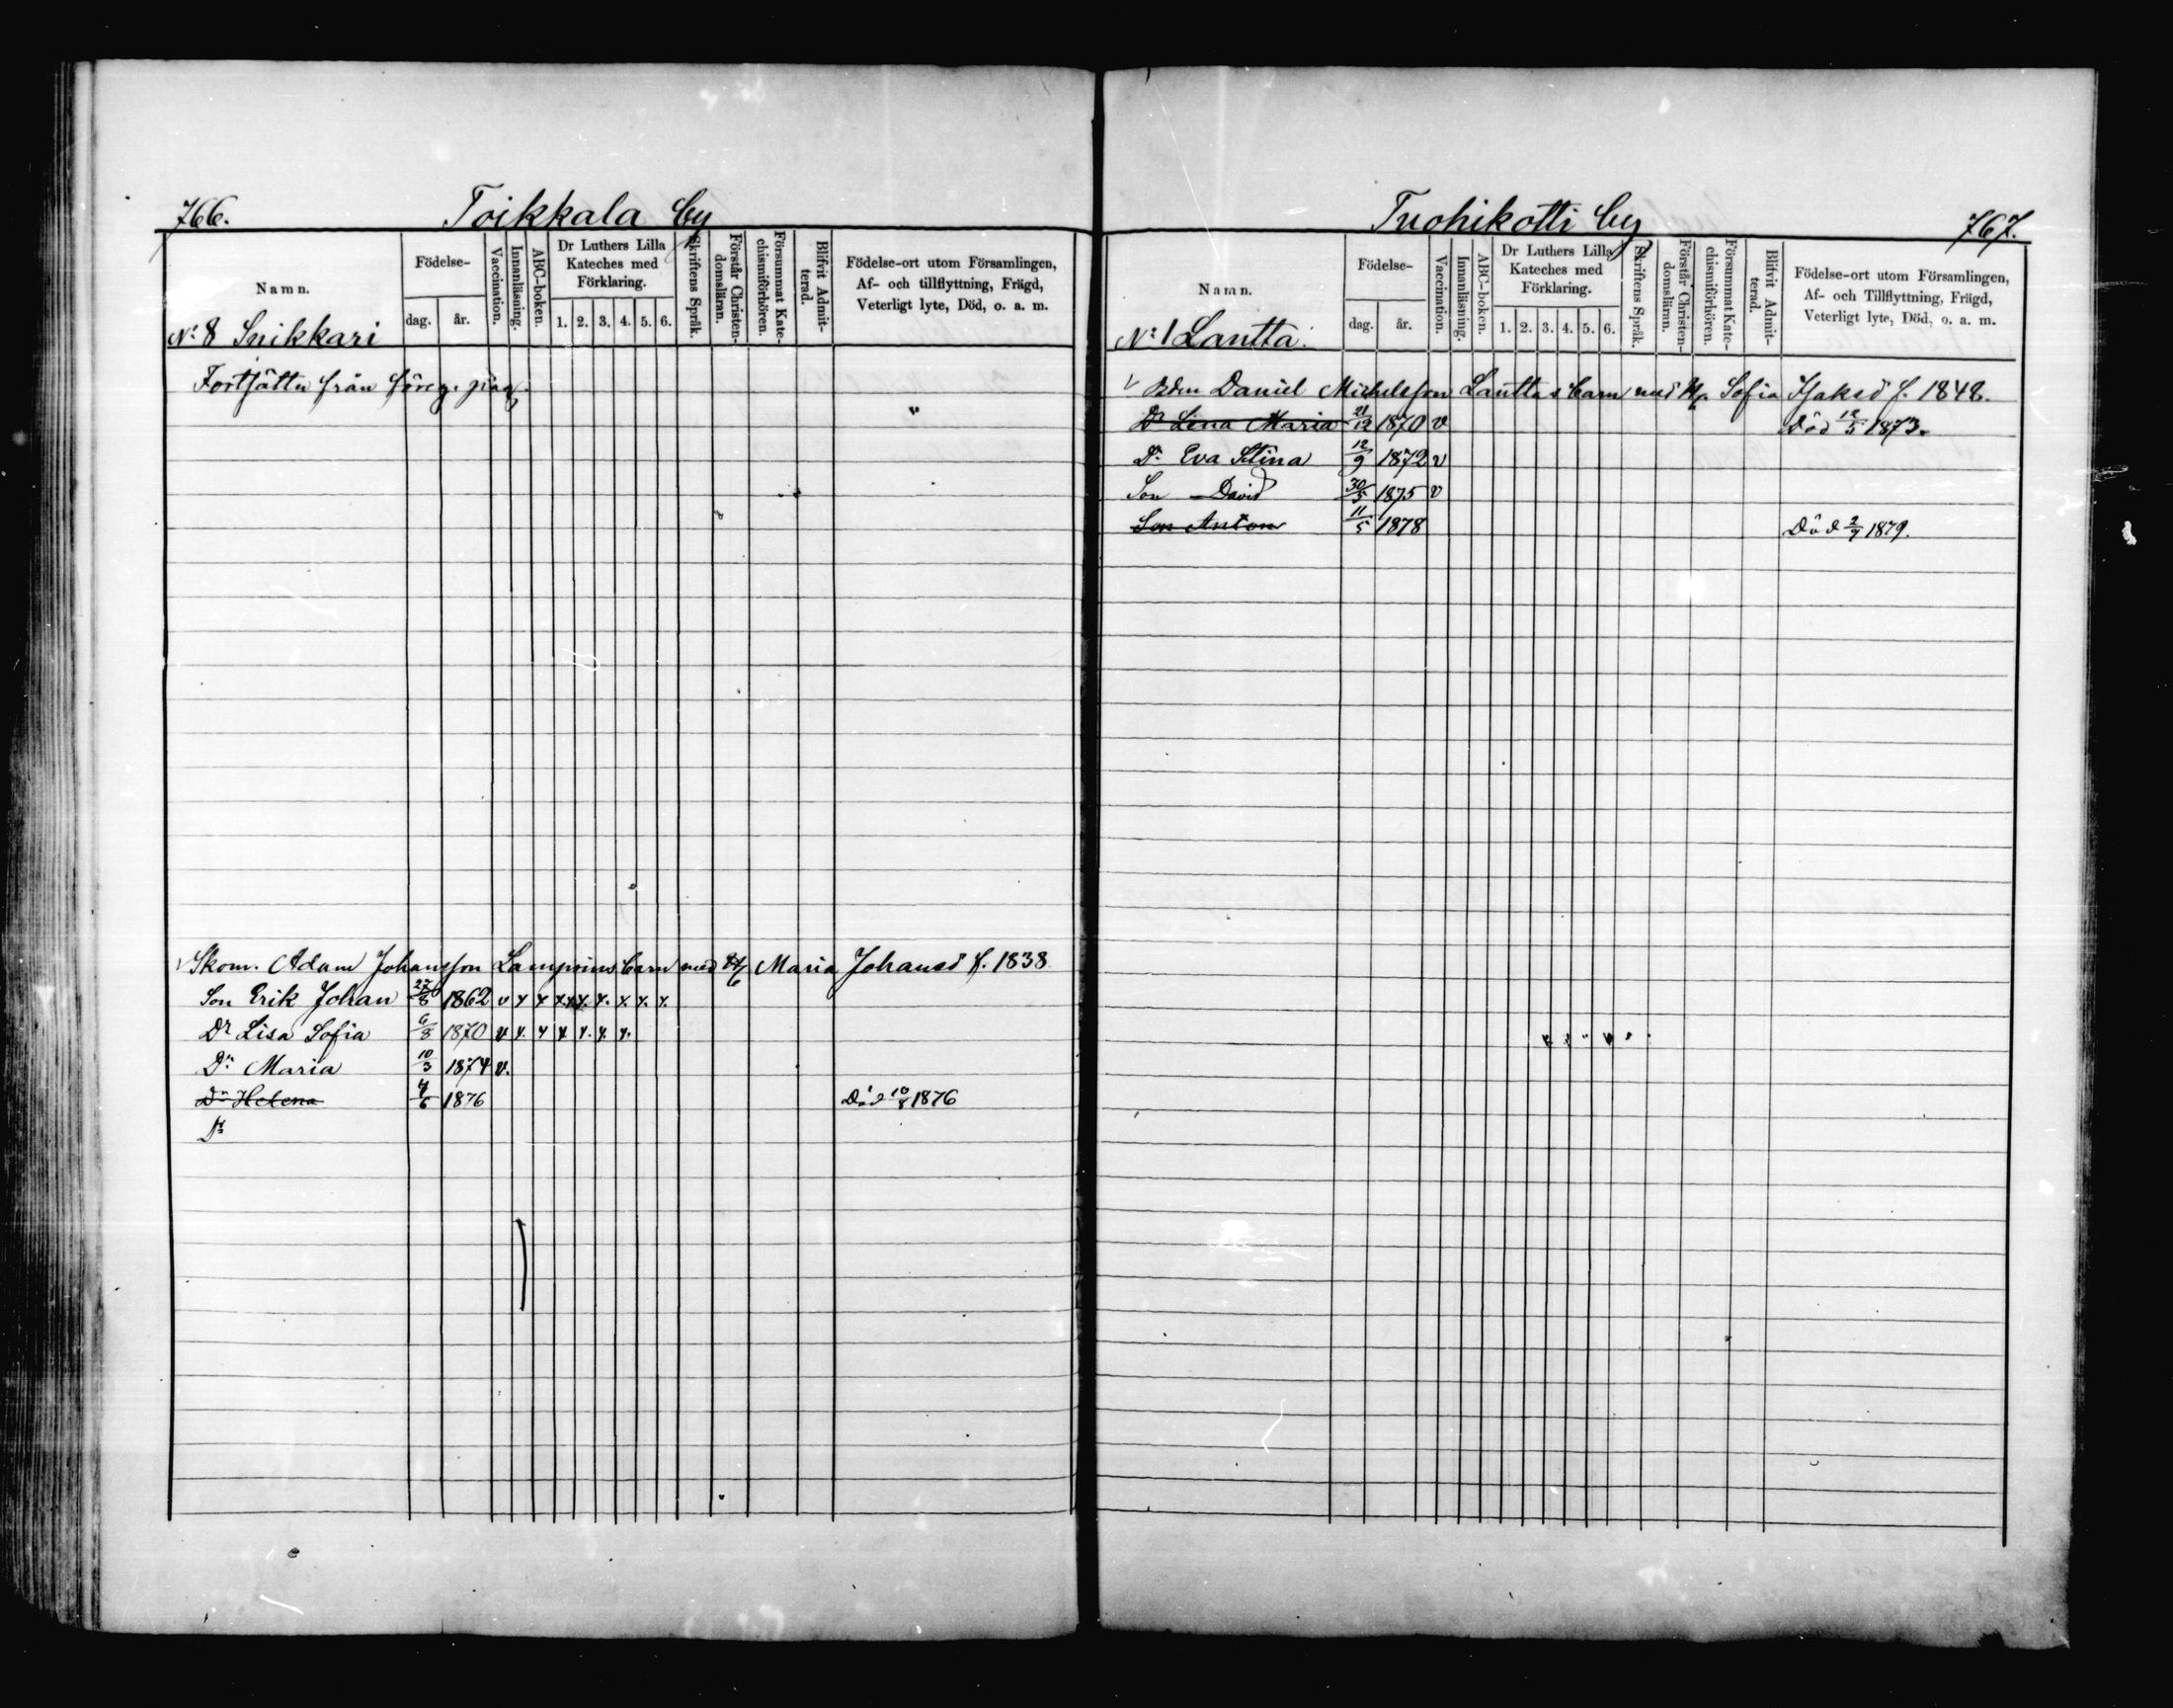 766. Toikkala by
Namn. Födelse- dag. år. Vaccination. Innanläsning. ABC-boken. Dr Luthers Lilla Kateches med Förklaring. 1. 2. 3. 4. 5. 6. Skriftens Språk. Förstår Christen-domsläran. Försummat Kate-chismiförhören. Blifvit Admit-terad. Födelse-ort utom Församlingen, Af- och tillflyttning, Frägd, Veterligt lyte, Död, o. a. m.
No 8 Snikkari
Fortsättn från föreg. pag.
v Skom. Adam Johansson Lamprins barn med H. Maria Johansd f. 1838
Son Erik Johan 1862 v x x x x x. x. x. x. x.
Dr Lisa Sofia 6/8 1870 v x. x x x. x. x.
Dr Maria 10/3 1874 v.
Dr Helena 4/6 1876 Död 10/8 1876
Dr
Tuohikotti by 767.
Namn. Födelse- dag. år. Vaccination. Innanläsning. ABC-boken. Dr Luthers Lilla Kateches med Förklaring. 1. 2. 3. 4. 5. 6. Skriftens Språk. Förstår Christen-domsläran. Försummat Kate-chismiförhören. Blifvit Admit-terad. Födelse-ort utom Församlingen, Af- och Tillflyttning, Frägd, Veterligt lyte, Död, o. a. m.
No 1 Lautta.
v Bdn Daniel Michelsson Lauttas barn med H. Sofia Isaksd f. 1848.
Dr Lina Maria 21/12 1870 v Död 12/5 1873.
Dr Eva Stina 12/9 1872 v
Son David 30/5 1875 v
Son Anton 11/5 1878 Död 2/7 1879.